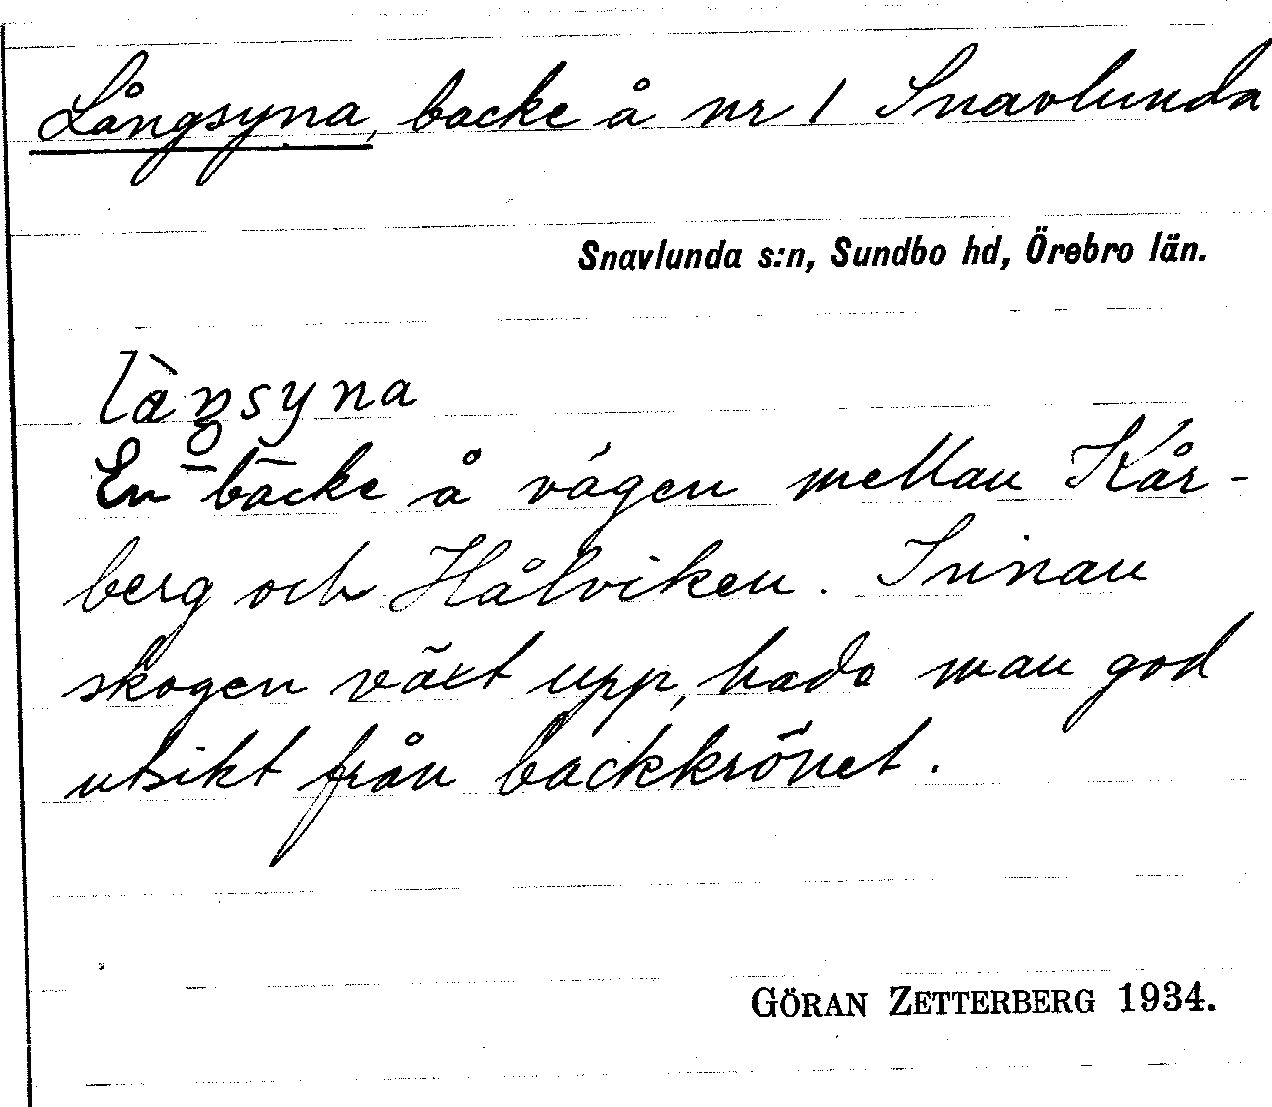 Långsyna, backe å nr 1 Snavlunda
Snavlunda s:n, Sundbo hd, Örebro län.
En backe å vägen mellan Kår-
berg och Hålviken. Innan
skogen växt upp, hade man god
utsikt från backkrönet.
GÖRAN ZETTERBERG 1934.